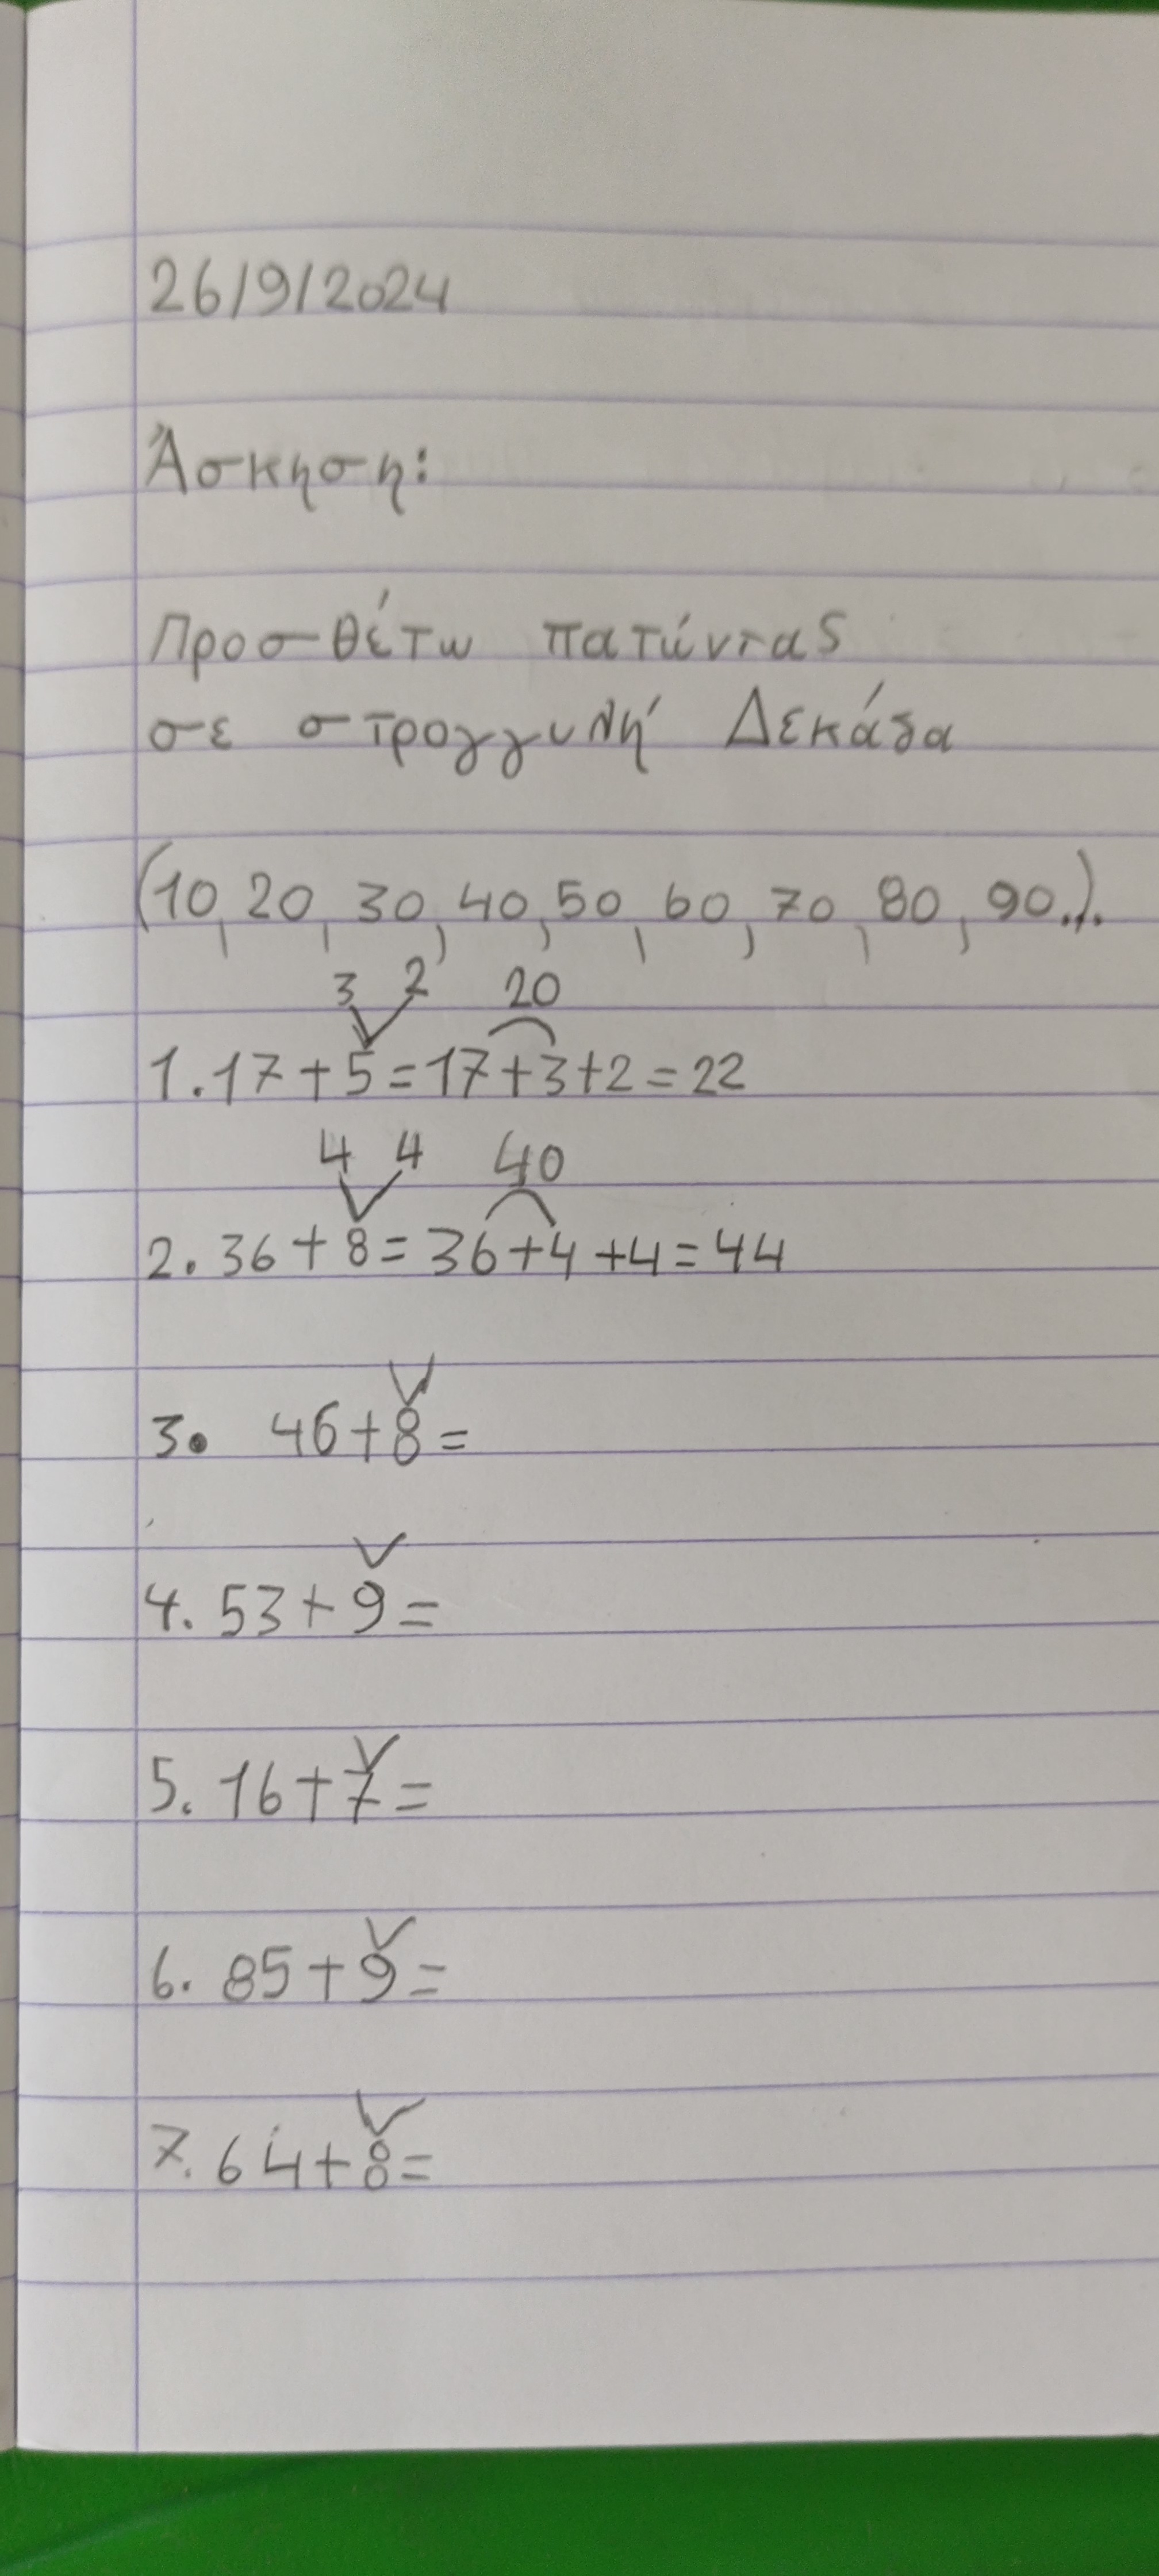 26/9/2024
Άσκηση:
Προσθέτω πατώντας
σε στρογγυλή Δεκάδα
(10, 20, 30, 40, 50, 60, 70, 80, 90..).
3 2 20
1. 17+5=17+3+2=22
4 4 40
2. 36+8=36+4+4=44
3. 46+8=
4. 53+9=
5. 16+7=
6. 85+9=
7. 64+8=